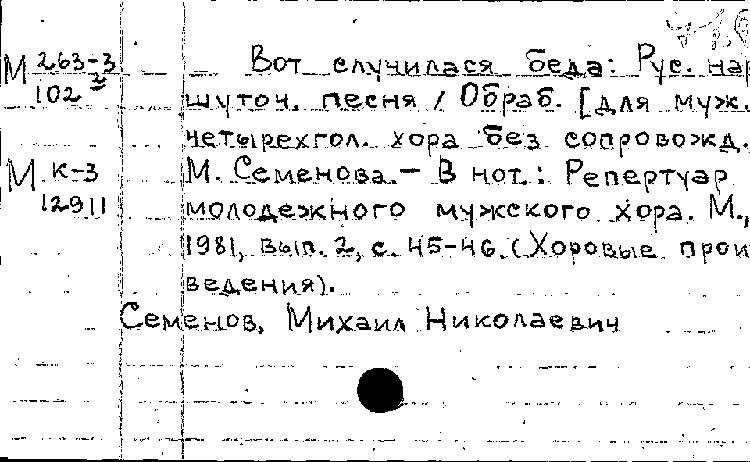 М 263-3/102²
М К-3/12911
Вот случилася беда: Рус. нар
шуточ. песня / Обраб. [для муж.
четырехгол. хора без сопровожд.
М. Семенова. — В нот.: Репертуар
молодежного мужского хора. М.,
1981, вып. 2, с. 45-46. (Хоровые прои
ведения).
Семенов, Михаил Николаевич